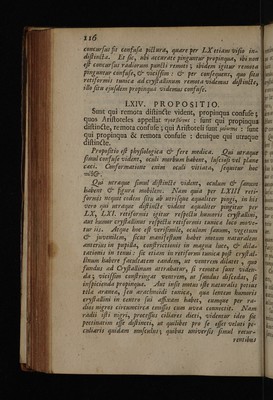 116
concursus sit confusa pictura, quare per LX etiam visio in-
distincta. Et sic, ubi accurate pinguntur propinqua, ibi non
est concursus radiorum puncti remoti; ibidem igitur remota
pinguntur confuse, & vicissim: & per consequens, quo situ
retiformis tunica ad crystallinum remota videmus distincte,
illo situ ejusdem propinqua videmus confuse.
LXIV. PROPOSITIO.
Sunt qui remota distincte vident, propinqua confuse;
quos Aristoteles appellat : sunt qui propinqua
distincte, remota confuse; qui Aristoteli sunt : sunt
qui propinqua & remota confuse: denique qui utraque
distincte.
Propositio est physiologica & fere medica. Qui utraque
simul confuse vident, oculi morbum habent, suscepti vel plane
caeci. Conformatione enim oculi vitiata, sequitur hoc
Qui utraque simul distincte vident, oculum & sanum
habent & figura mobilem. Nam quia per LXIII reti-
formis nequit eodem situ ab utrisque aequaliter pingi, in his
vero qui utraque distincte vident aequaliter pingitur per
LX, LXI. retiformis igitur respectu humoris crystallini,
aut humor crystallinus respectu retiformis tunicae loco move-
tur iis. Atque hoc est verisimile, oculum sanum, vegetum
& juvenilem, sicut manifestum habet motum naturalem
anterius in pupilla, constrictionis in magna luce, & dila-
tationis in tenui: sic etiam in retiformi tunica post crystal-
linum habere facultatem eandem, ut ventrem dilatet, quo
fundus ad Crystallinum attrahatur, si remota sunt viden-
da; vicissim constringat ventrem, ut fundus discedat, si
inspicienda propinqua. Aut inest motus iste naturalis potius
tela aranea, seu arachnoidi tunica, qua lentem humoris
crystallini in centro sui affixam habet, eamque per ra-
dios nigros circumcirca consitos cum uvea connectit. Nam
radii isti nigri, processus ciliares dicti, videntur ideo sic
pectinatim esse distincti, ut quilibet pro se esset veluti pe-
culiaris quidam musculus; quibus universis simul retur-
rentibus